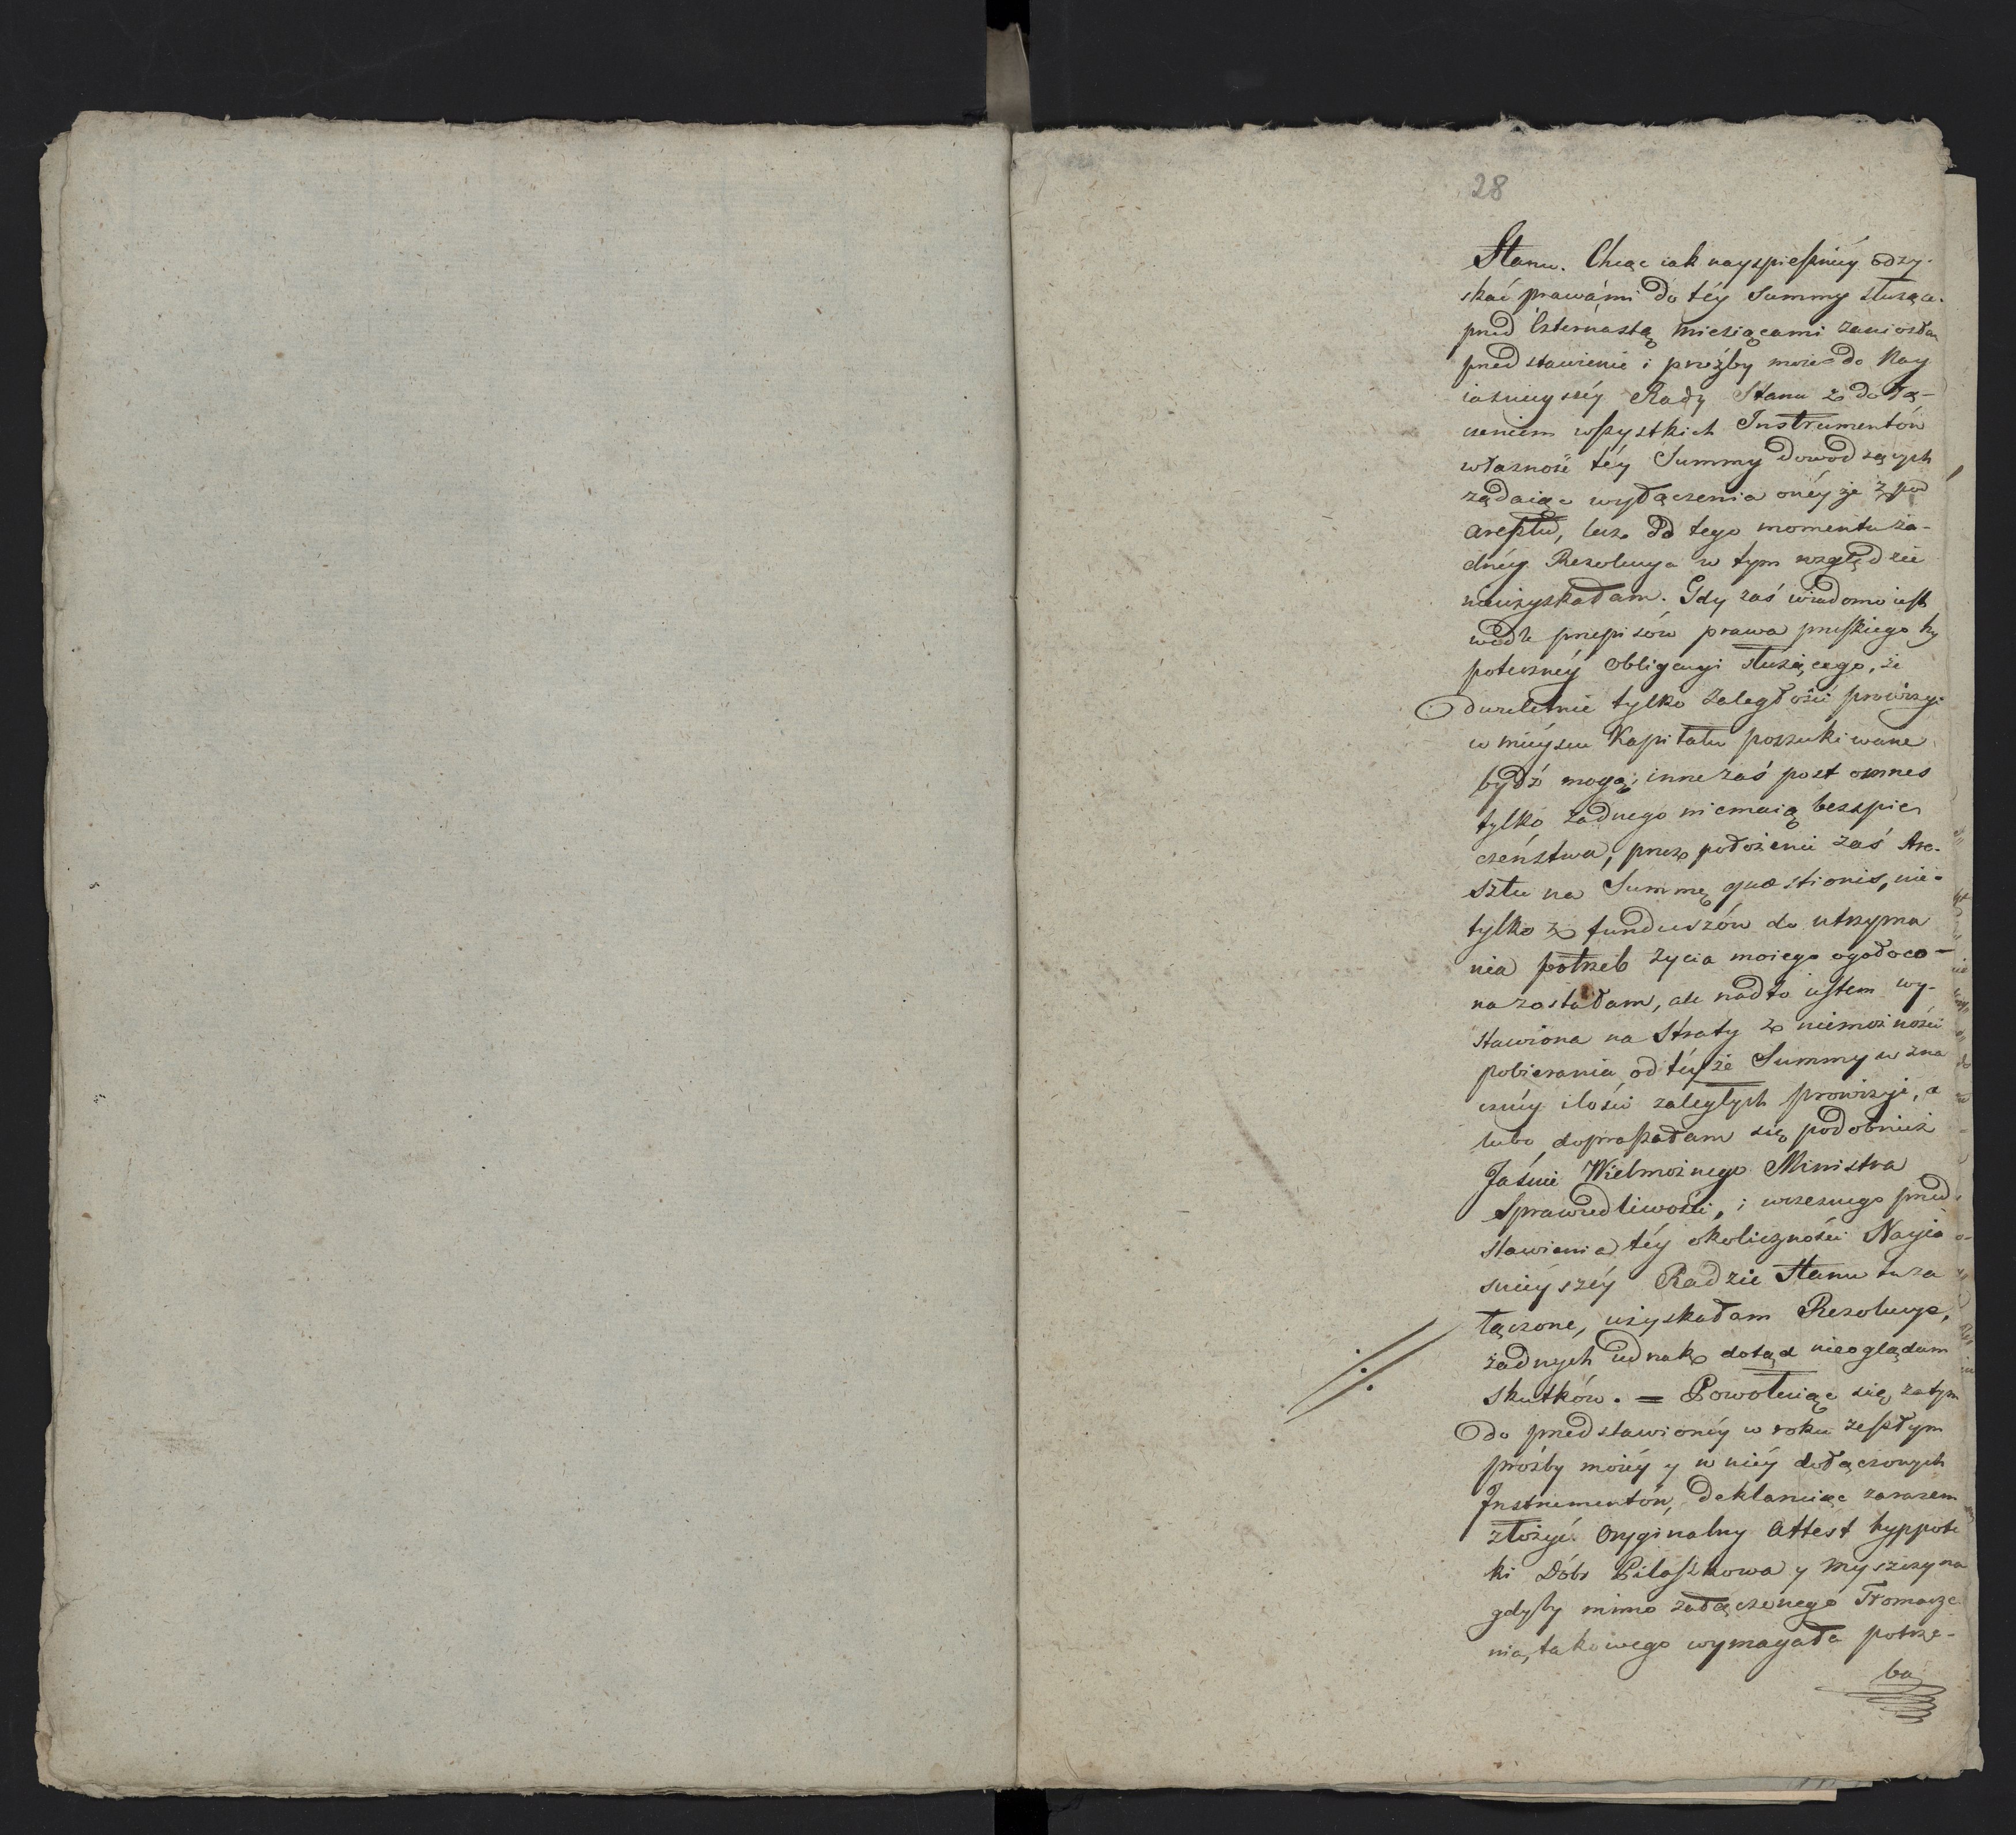 28
Stanu. Chcąc iak nayspieszniéy odzy-
skać prawámi do téy Summy służące.
przed Czternastą miesiącami zaniosłam
przedstawienie i proźby moie do Nay
iaśnieyszéy Rady Stanu z dołą-
czeniem wszystkich Instrumentów
własność téy Summy dowodzących
żądaiąc wyłączenia onéyże z pod
aresztu, lecz od tego momentu ża-
dnéy Rezolucya w tym względzie
nieuzyskałam. Gdy zaś wiadomo iest
wedle przepisów prawa pruskiego hy
poteczney obligacyi służącego, że
dwuletnie tylko zaległości prowizyi
w mieyscu Kapitału poszukiwane
bydź mogą; inne zaś post omnes
tylko żadnego niemaią bezspie
czeństwa, przez położenie zaś Are-
sztu na Summę quaestionis, nie-
tylko z funduszów do utrzyma
nia potrzeb życia moiego ogołoco-
na zostałam, ale nadto iestem wy-
stawiona na Straty z niemożności
pobierania od téyże Summy w zna
cznéy ilości zaległych prowizyi, a
lubo dopraszałam się podobnież
Jaśnie Wielmożnego Ministra
Sprawiedliwości, i wczesnego przed
stawienia téy okoliczności Nayia
śniéyszéy Radzie Stanu tu za
łączone, uzyskałam Rezolucye,
żadnych iednak dotąd nieoglądam
skutków. = Powołuiąc się zatym
do przedstawionéy w roku zeszłym
prośby moiéy y w niéy dołączonych
Instrumentów, deklaruiąc zarazem
złożyć Oryginalny Attest hyppote
ki Dóbr Pilaszkowa y Myszczyna
gdyby mimo załączonego Tłomacze
nia, takowego wymagała potrze-
ba